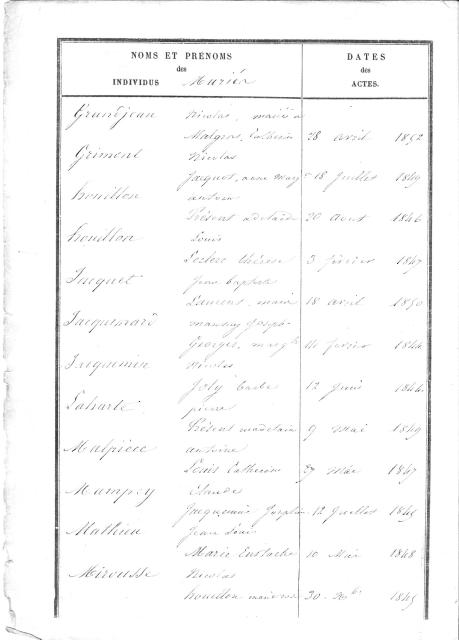 NOMS ET PRÉNOMS
des
INDIVIDUS Mariés
DATES
des
ACTES.
Grandjean Nicolas, marié à
Malgras, Catherine 28 avril 1852
Grimont Nicolas
Jacquot, anne marg 18 Juillet 1849
houillon antoine
Présent adelaïde 20 aout 1846
houillon Louis
Leclerc thérèse 3 février 1847
Jacquot Jean baptiste
Laurent, marie 18 avril 1850
Jacquemard Joseph
Georges, marg 14 février 1844
Jacquemin Nicolas
Joly 12 Juin 1844
Laharte pierre
Présent madelaine 9 Mai 1849
Malpièce antoine
Louis Catherine 27 Mai 1847
Mampey Claude
Jacquemin Joséphine 12 Juillet 1845
Mathieu Jean Louis
Marie Eustache 10 Mai 1848
Mirousse Nicolas
houillon 30 1845